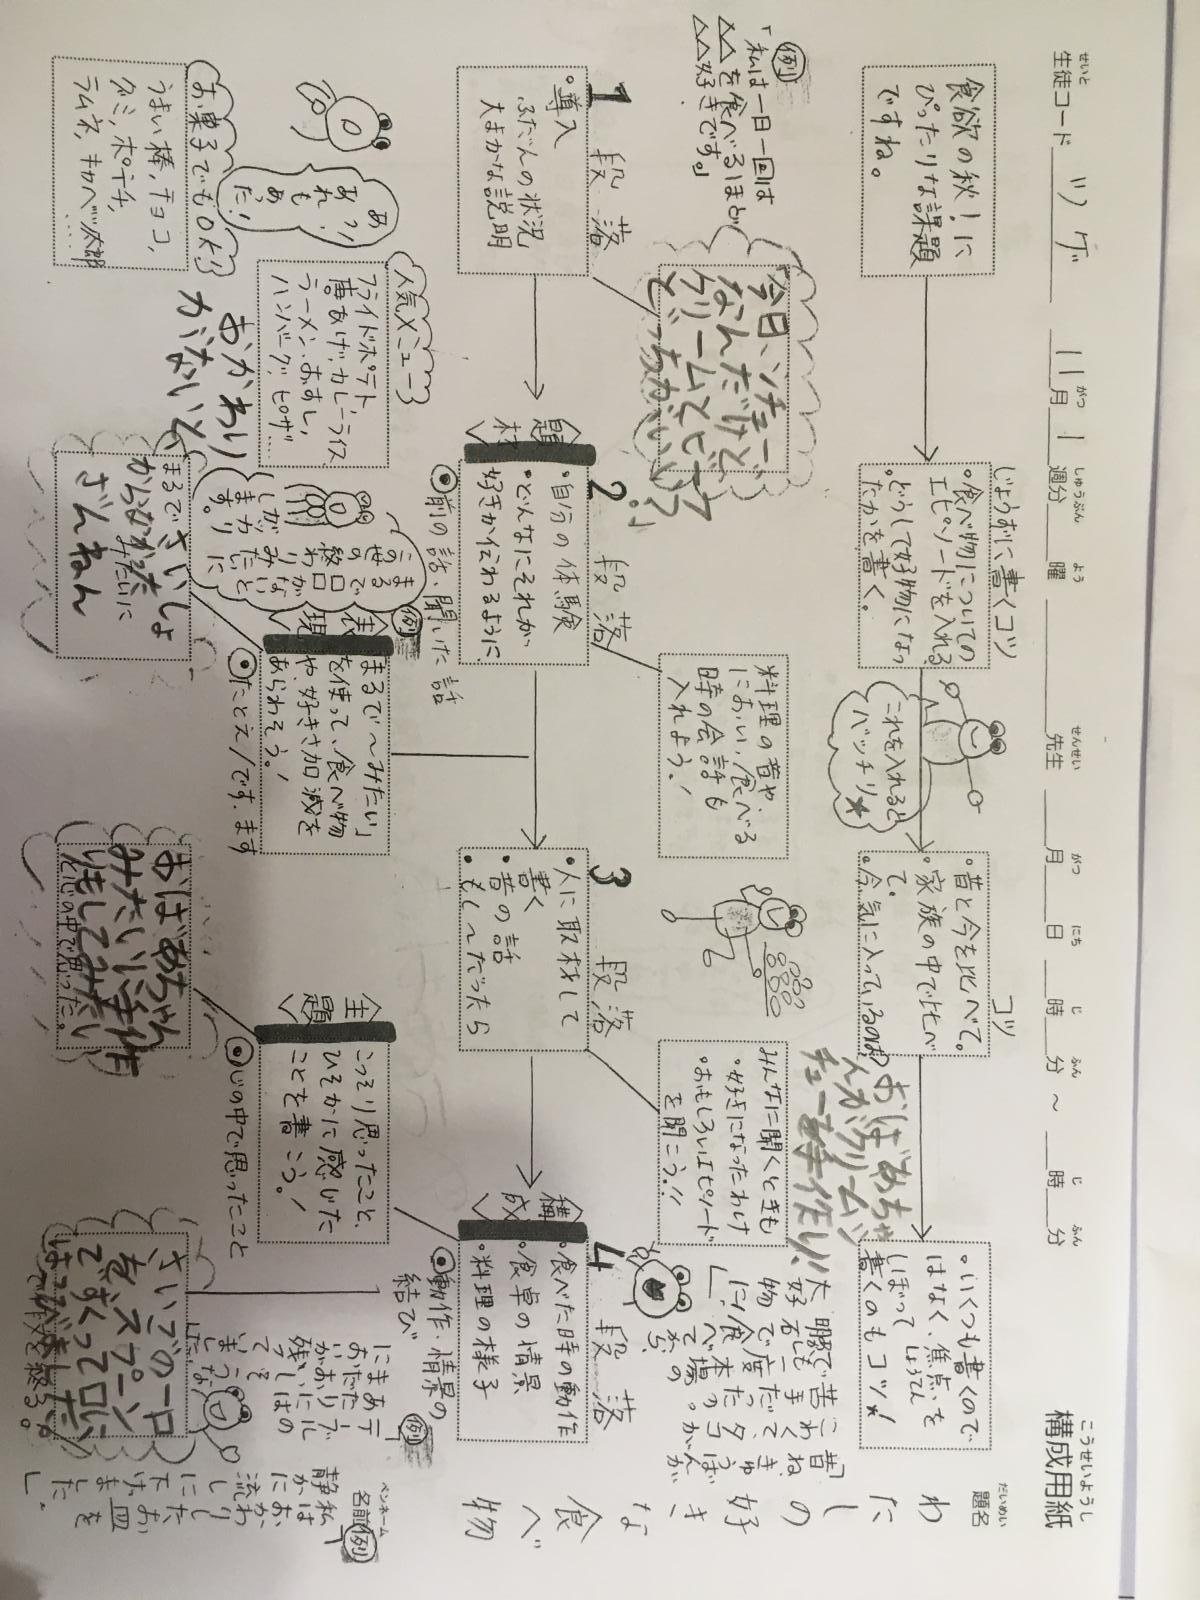 こうせいようし
構成用紙
せいと
生徒コード ツゲ
11月1週分 曜 先生 月 日 時 分 ～ 時 分
がつ しゅうぶん よう せんせい がつ にち じ ふん じ ふん
だいめい
題名
わたしの好きな食べ物
ペンネーム
名前
食欲の秋！に
ぴったりな課題
ですね。
じょうずに書くコツ
・食べ物についての
エピソードを入れる
・どうして好物になっ
たかを書く。
これを入れると
バッチリ★
コツ
・昔と今を比べて。
・家族の中で比べ
て。
・今、気に入っているのは？
おばあちゃ
んがクリームシ
チュー手作り！
・いくつも書くので
はなく、焦点を
しょうてん
しぼって
書くのもコツ！
例
「私は一日一回は
△△を食べるほど
△△好きです。」
今日、シチュー
なんだけど
クリームとビーフ
どっちがいい？」
料理の音や、
におい、食べる
時の会話も
入れよう！
みんなに聞くときも
・好きになったわけ
・おもしろいエピソード
を聞こう!!
1段落
・導入
ふだんの状況
大まかな説明
題材
2段落
・自分の体験
・どんなにそれが
好きか伝わるように
前の話・聞いた話
3段落
・人に取材して
書く
・昔の話
・もし～だったら
構成
4段落
・食べた時の動作
・食卓の情景
・料理の様子
動作・情景の
結び
あっ！
あれも
あった！
人気メニュー
フライドポテト、
唐あげ、カレーライス
ラーメン、おすし、
ハンバーグ、ピザ…
お菓子でもOK
うまい棒、チョコ、
グミ、ポテチ、
ラムネ、キャベツ太郎
……
おかわり
がないと
まるでさいしょ
からなかった
みたいに
ざんねん
例
まるで
この世の終わり
みたいな
表現
「まるで～みたい」
を使って、食べ物
や、好きさ加減を
あらわそう！
たとえ/です.ます
主題
こっそり思ったこと、
ひそかに感じた
ことを書こう！
心の中で思ったこと
おばあちゃん
みたいに手作
りをしてみたい、
と心の中で思った。
さいごの一口
を、スプーン
ですくって口に
はこびました。
で作文を終える。
例
例
私は
静かに
おかわり